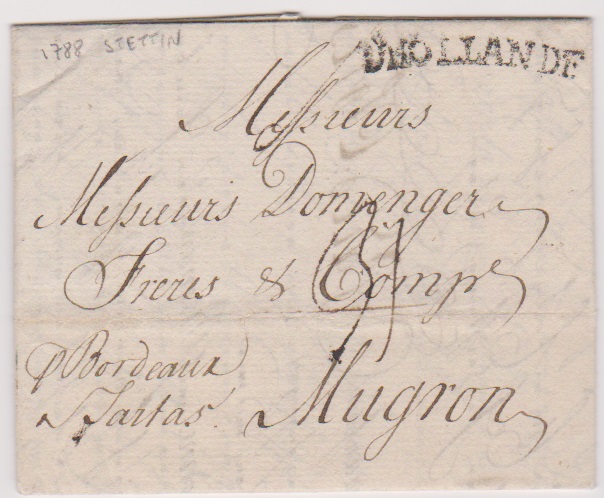 1788 STETTIN
DHOLLANDE
Messieurs
Messieurs Domenger
Freres & Compe
p Bordeaux
Tartas. Mugron